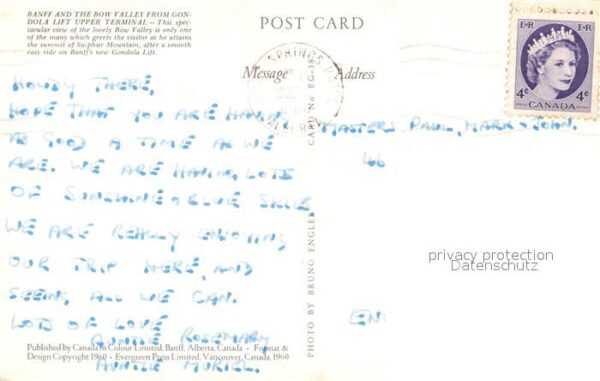 BANFF AND THE BOW VALLEY FROM GON-
DOLA LIFT UPPER TERMINAL — This spec-
tacular view of the lovely Bow Valley is only one
of the many which greets the visitor as he attains
the summit of Sulphur Mountain, after a smooth
easy ride on Banff's new Gondola Lift.
POST CARD
Message
Address
SPRINGS
E·R E·R
4¢ 4¢
CANADA
HOWDY THERE,
HOPE THAT YOU ARE HAVING
AS GOOD A TIME AS WE
ARE. WE ARE HAVING LOTS
OF SUNSHINE & BLUE SKIES
WE ARE REALLY ENJOYING
OUR TRIP HERE, AND
SEEING ALL WE CAN.
LOTS OF LOVE
AUNTIE ROSEMARY
AUNTIE MURIEL.
MASTERS PAUL, MARK & JOHN.
46
EN
PHOTO BY BRUNO ENGLER
CARD No.
privacy protection
Datenschutz
Published by Canada in Colour Limited, Banff, Alberta, Canada - Format &
Design Copyright 1960 - Evergreen Press Limited, Vancouver, Canada, 1960